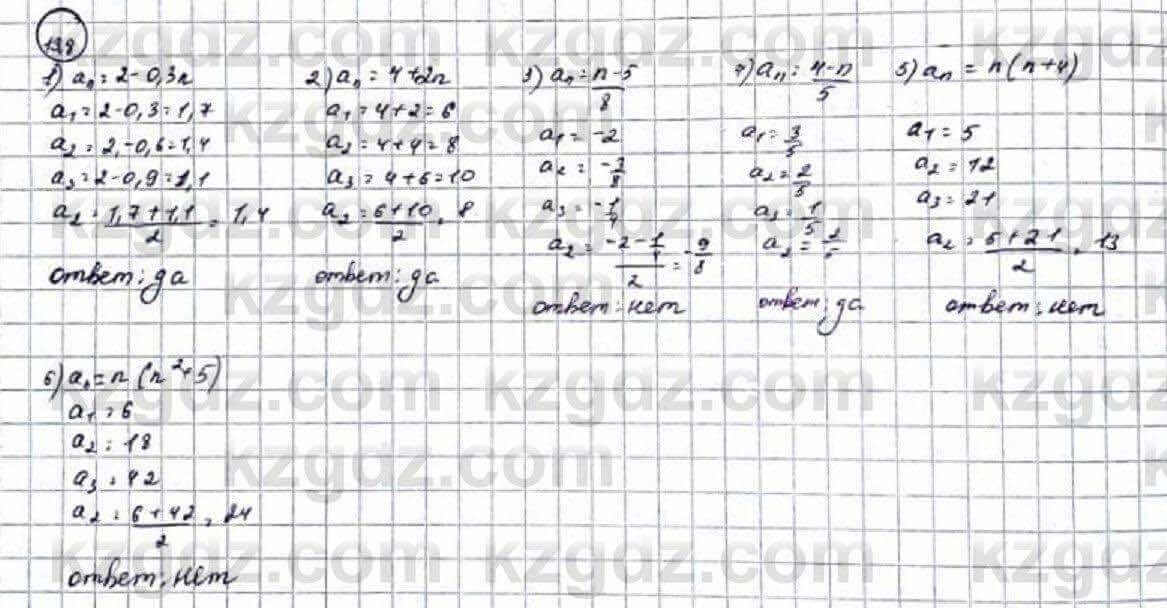 198
1) aₙ = 2 - 0,3n
a₁ = 2 - 0,3 = 1,7
a₂ = 2,-0,6 = 1,4
a₃ = 2 - 0,9 = 1,1
a₂ = (1,7+1,1)/2 = 1,4
ответ: да
2) aₙ = 4 + 2n
a₁ = 4 + 2 = 6
a₂ = 4 + 4 = 8
a₃ = 4 + 6 = 10
a₂ = (6+10)/2 = 8
ответ: да
3) aₙ = (n-5)/8
a₁ = -2
a₂ = -3/8
a₃ = -1/4
a₂ = (-2-1/4)/2 = -9/8
ответ: нет
4) aₙ = (4-n)/5
a₁ = 3/5
a₂ = 2/5
a₃ = 1/5
a₂ = 2/5
ответ: да
5) aₙ = n(n+4)
a₁ = 5
a₂ = 12
a₃ = 21
a₂ = (5+21)/2 = 13
ответ: нет
6) aₙ = n(n²+5)
a₁ = 6
a₂ = 18
a₃ = 42
a₂ = (6+42)/2 = 24
ответ: нет
kzgdz.com